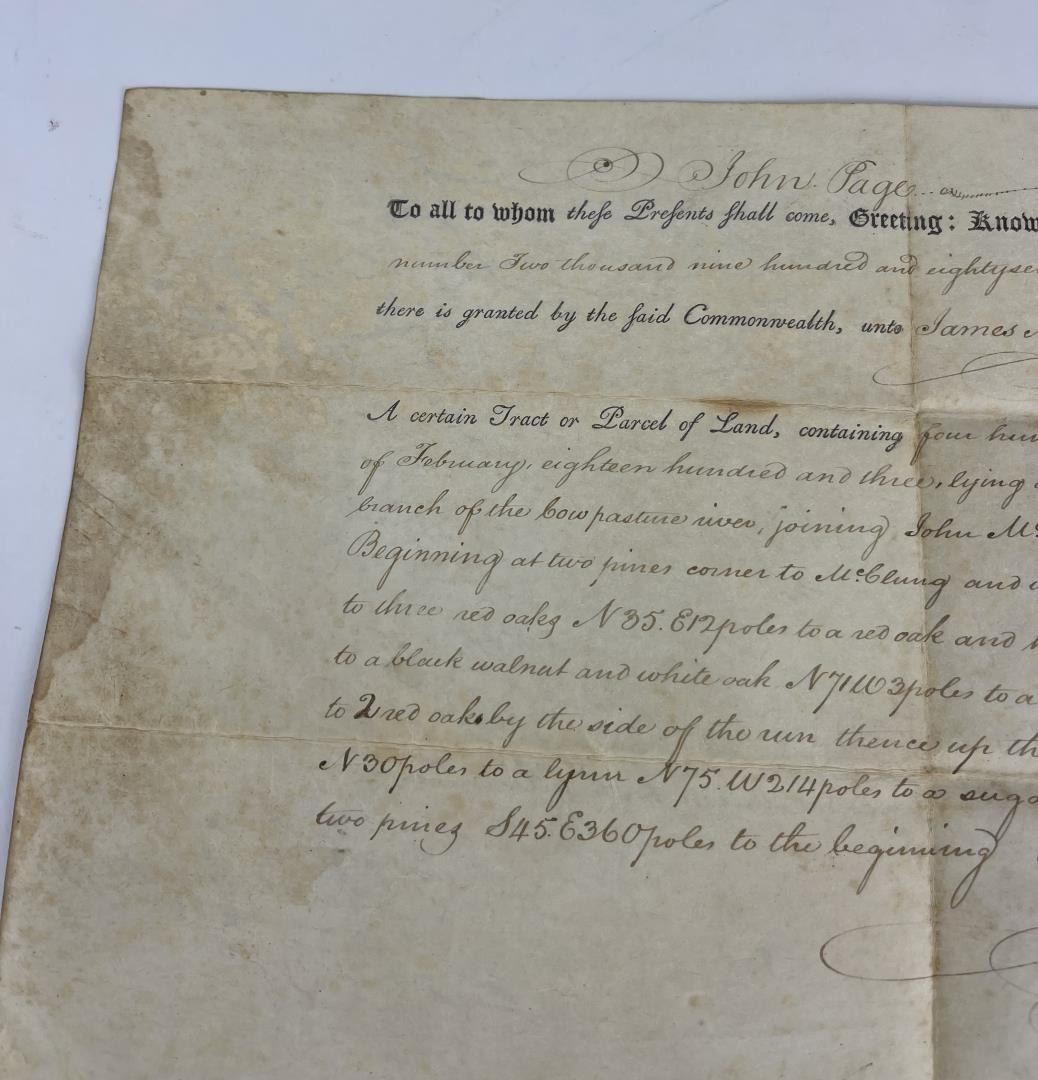 John Page
To all to whom theſe Preſents ſhall come, Greeting: Know
number Two thousand nine hundred and eightyse
there is granted by the ſaid Commonwealth, unto James
A certain Tract or Parcel of Land, containing four hun
of February, eighteen hundred and three, lying
branch of the Cowpasture river, joining John Mc
Beginning at two pines corner to McClung and
to three red oaks N35.E12poles to a red oak and
to a black walnut and white oak N71W3poles to a
to 2 red oaks by the side of the run thence up th
N30poles to a lynn N75.W214poles to a suga
two pines S45.E360poles to the beginning